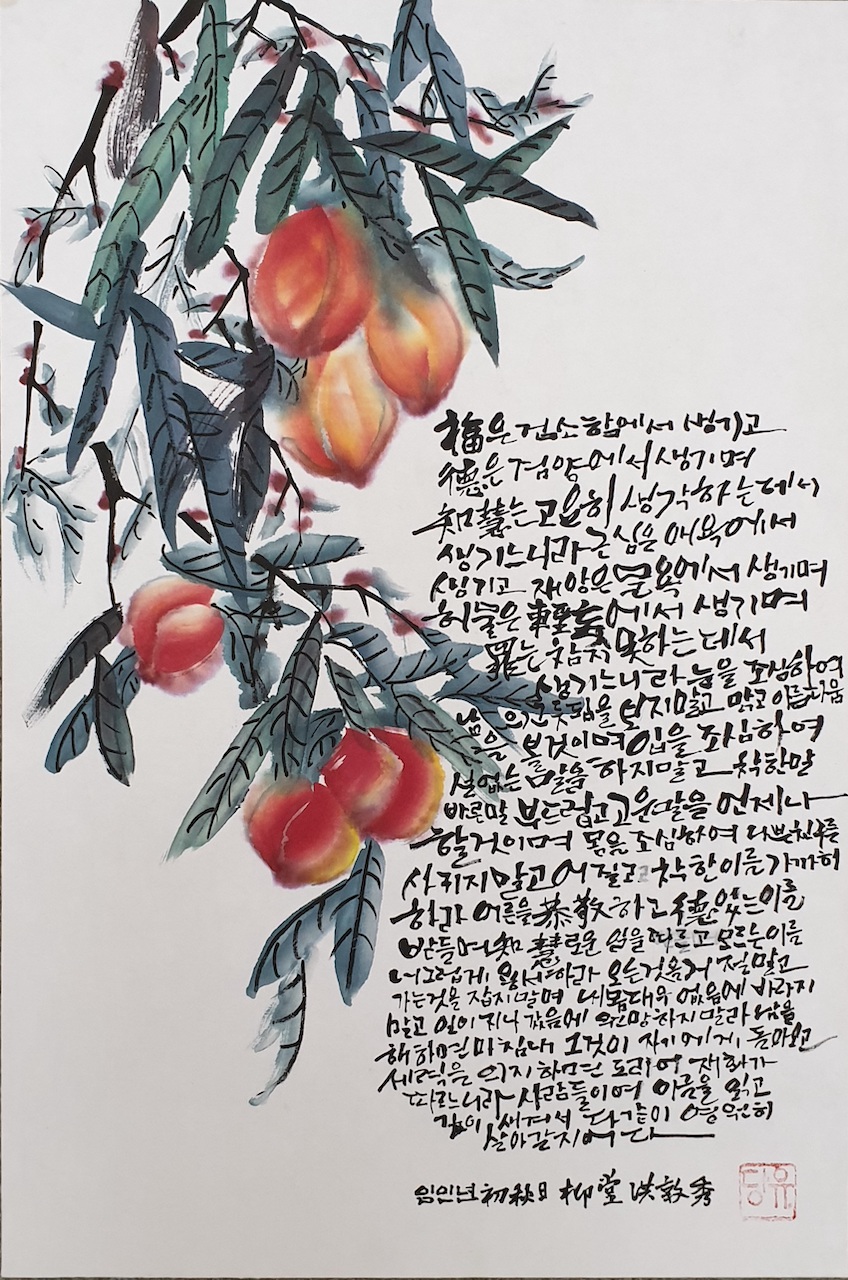 福은 검소함에서 생기고
德은 겸양에서 생기며
知慧는 고요히 생각하는데서
생기느니라 근심은 애욕에서
생기고 재앙은 물욕에서 생기며
허물은 輕妄에서 생기며
罪는 참지 못하는데서
생기느니라 눈을 조심하여
남의 그릇됨을 보지말고 맑고 아름다움
을 볼것이며 입을 조심하여
실없는 말을 하지말고 착한말
바른말 부드럽고 고운말을 언제나
할것이며 몸을 조심하여 나쁜친구를
사귀지말고 어질고 착한이를 가까히
하라 어른을 恭敬하고 德있는이를
받들며 知慧로운 이를 따르고 모르는이를
너그럽게 용서하라 오는것을 거절말고
가는것을 잡지말며 내몸대우 없음에 바라지
말고 일이 지나갔음에 원망하지말라 남을
해하면 마침내 그것이 자기에게 돌아오고
세력을 의지하면 도리어 재화가
따르느니라 사람들이여 이글을 읽고
깊이 새겨서 다같이 영원히
살아갈지어다
임인년 初秋日 柳堂 洪敦秀
유당